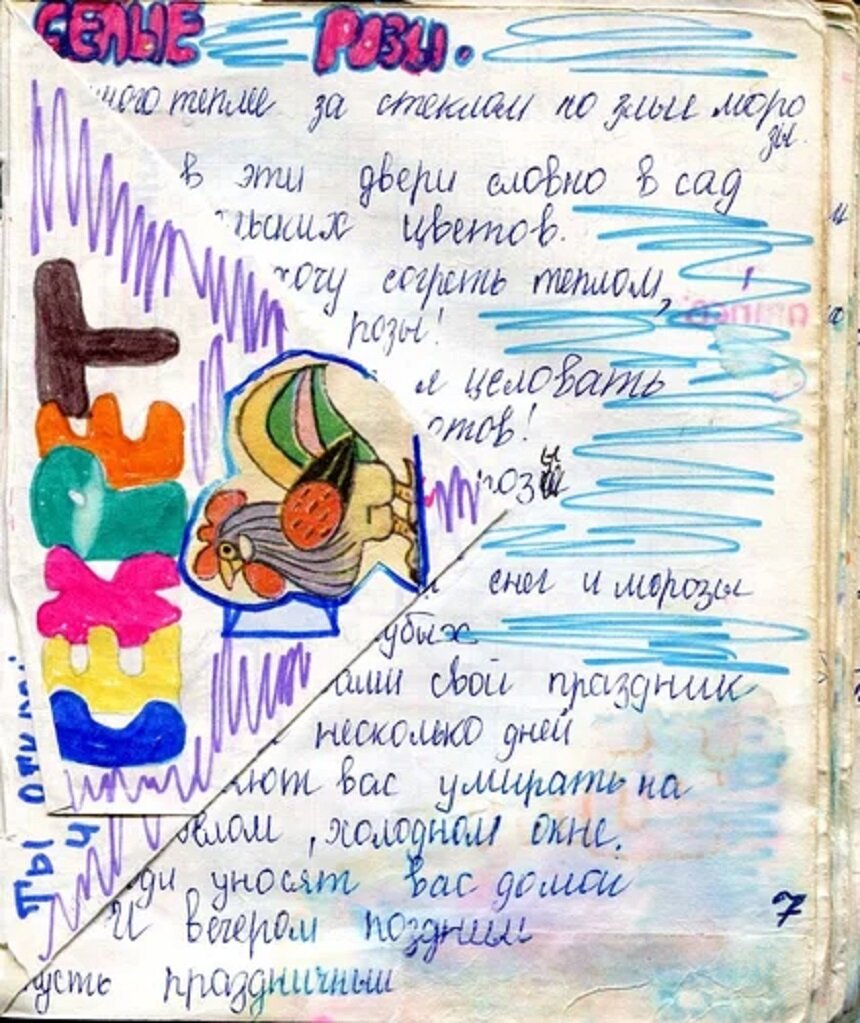 БЕЛЫЕ РОЗЫ.
много теплее за стеклом но злые моро
зы.
в эти двери словно в сад
льских цветов.
хочу согреть теплом,
розы!
я целовать
отов!
розы
снег и морозы
лубых
ами свой праздник
несколько дней
яют вас умирать на
белом, холодном окне.
ди уносят вас домой
И вечером поздним
усть праздничный
7
СЕКРЕТ
ТЫ